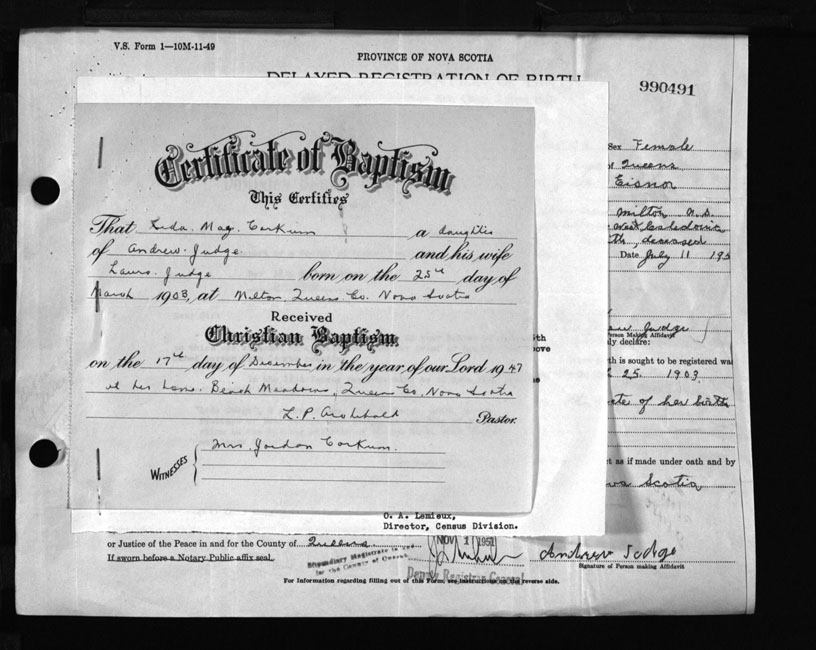 V.S. Form 1—10M-11-49
PROVINCE OF NOVA SCOTIA
DELAYED REGISTRATION OF BIRTH
990491
Sex Female
Queens
Eisnor
Milton N.S.
West Caledonia
deceased
Date July 11 195
Certificate of Baptism
This Certifies
That Leda. May. Corkum a daughter
of Andrew. Judge and his wife
Laura. Judge born on the 25th day of
March 1903, at Milton, Queens Co. Nova Scotia
Received
Christian Baptism
on the 17th day of December in the year of our Lord 1947
at her home. Beach Meadows, Queens Co, Nova Scotia
L. P. Archibald Pastor.
WITNESSES
Mrs. Jordan Corkum.
Judge
Person Making Affidavit
declare:
th is sought to be registered wa
25. 1903
of her birth
et as if made under oath and by
Scotia
O. A. Lemieux,
Director, Census Division.
or Justice of the Peace in and for the County of Queens
If sworn before a Notary Public affix seal.
Stipendiary Magistrate in and
for the County of Queens
NOV 1 1951
Deputy Registrar General
Andrew Judge
Signature of Person making Affidavit
For Information regarding filling out of this Form, see instructions on the reverse side.